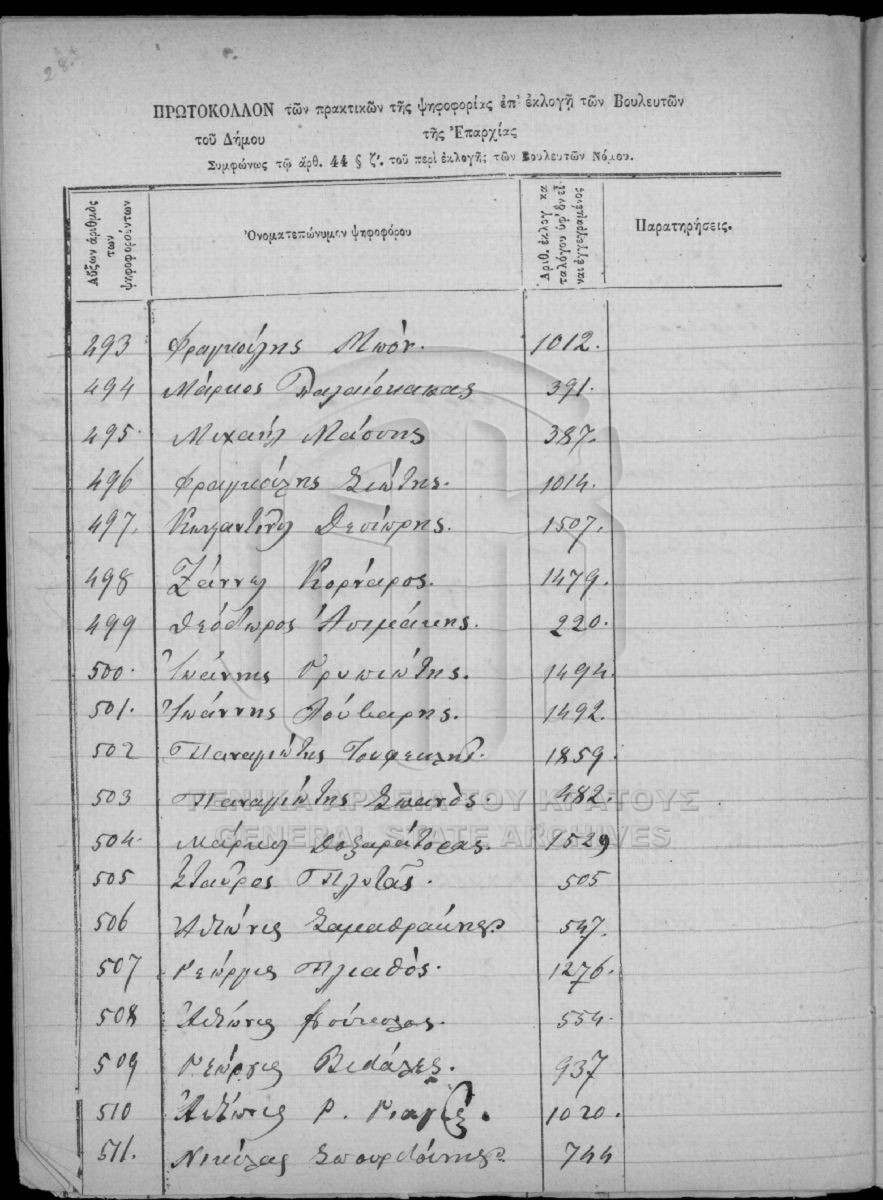 28
ΠΡΩΤΟΚΟΛΛΟΝ τῶν πρακτικῶν τῆς ψηφοφορίας ἐπ' ἐκλογῇ τῶν Βουλευτῶν
τοῦ Δήμου τῆς Ἐπαρχίας
Συμφώνως τῷ ἄρθ. 44 § ζ'. τοῦ περὶ ἐκλογῆς τῶν Βουλευτῶν Νόμου.
Αὔξων ἀριθμὸς τῶν ψηφοφορούντων
Ὀνοματεπώνυμον ψηφοφόρου
Ἀριθ. ἐκλογ καταλόγου ὑφ' ὃν εἶναι ἐγγεγραμμένος
Παρατηρήσεις.
493 Φραγκούλης 1012.
494 Μάρκος Παλαιόκαπας 391.
495 Μιχαὴλ 387.
496 Φραγκούλης Σιώτης. 1014.
497. 1507.
498 Ζάννες Κορνάρος. 1479.
499 Θεόδωρος Ἀσιμάκης. 220.
500. Ἰωάννης Γρυπιώτης. 1494.
501. Ἰωάννης Λούβαρης. 1492.
502 Παναγιώτης 1859.
503 Παναγιώτης Σπανὸς. 482.
504. 1529
505 Σταῦρος Πλυτᾶς. 505
506 Ἀντώνις Σαμαθράκης 547.
507 Γεώργις Πλιαθὸς. 1276.
508 Ἀντώνις Βούκολας. 554.
509 Γεώργις Βιδάλες. 937
510 Ἀντώνις Ρ. 1020.
511. Νικόλας 744
ΓΕΝΙΚΑ ΑΡΧΕΙΑ ΤΟΥ ΚΡΑΤΟΥΣ
GENERAL STATE ARCHIVES